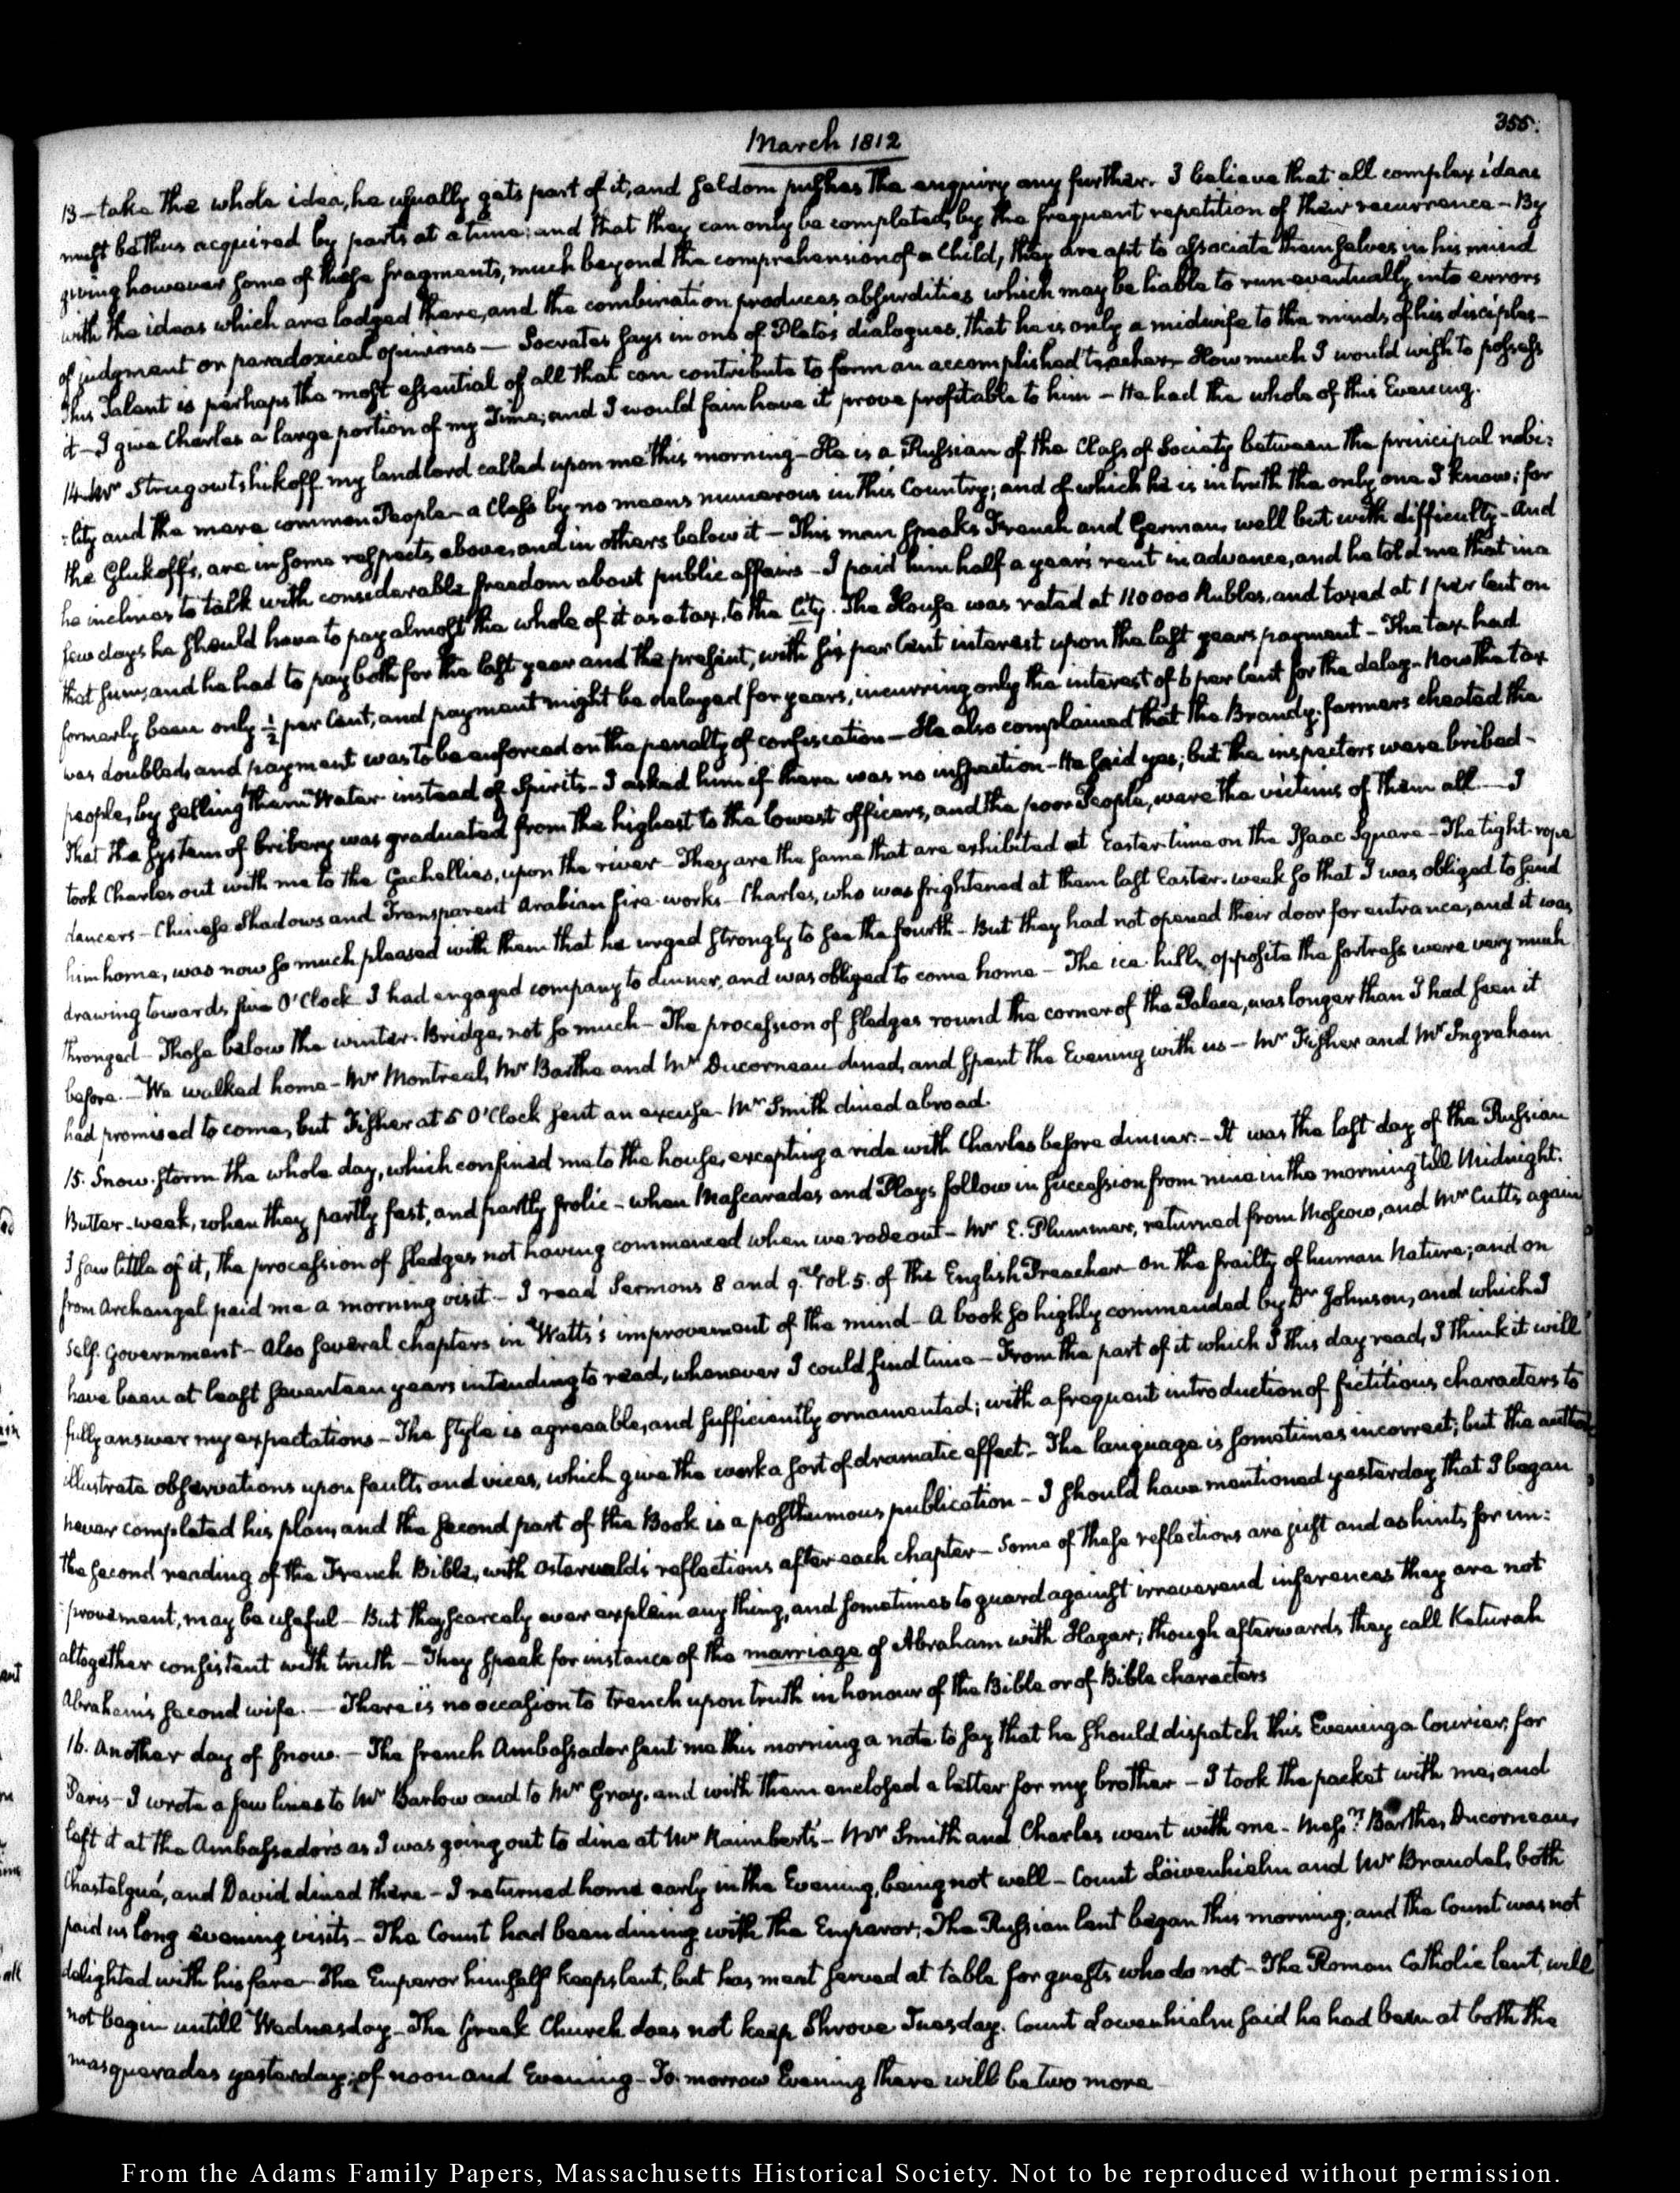 355.
March 1812
13 — take the whole idea, he usually gets part of it, and seldom pushes the enquiry any further. I believe that all complex ideas
must be thus acquired by parts at a time; and that they can only be completed, by the frequent repetition of their recurrence — By
giving however some of these fragments, much beyond the comprehension of a Child, they are apt to associate themselves in his mind
with the ideas which are lodged there, and the combination produces absurdities which may be liable to run eventually into errors
of judgment or paradoxical opinions — Socrates says in one of Plato's dialogues, that he is only a midwife to the minds of his disciples —
This Talent is perhaps the most essential of all that can contribute to form an accomplished teacher — How much I would wish to possess
it — I give Charles a large portion of my Time; and I would fain have it prove profitable to him — He had the whole of this Evening.
14. Mr Strugowtshikoff my landlord called upon me this morning — He is a Russian of the Class of Society between the principal nobi:
:lity and the mere common People — a Class by no means numerous in this Country; and of which he is in truth the only one I know; for
the Glukoff's, are in some respects above, and in others below it — This man speaks French and German, well but with difficulty — And
he inclines to talk with considerable freedom about public affairs — I paid him half a year's rent in advance, and he told me that in a
few days he should have to pay almost the whole of it as a tax, to the City. The House was rated at 110000 Rubles, and taxed at 1 per Cent on
that sum, and he had to pay both for the last year and the present, with six per Cent interest upon the last years payment — The tax had
formerly been only ½ per Cent, and payment might be delayed for years, incurring only the interest of 6 per Cent for the delay — Now the tax
was doubled, and payment was to be enforced on the penalty of confiscation — He also complained that the Brandy-farmers cheated the
people, by selling them Water instead of Spirits — I asked him if there was no inspection — He said yes; but the inspectors were bribed —
That the system of bribery was graduated from the highest to the lowest officers, and the poor People, were the victims of them all. — I
took Charles out with me to the Gachellies, upon the river — They are the same that are exhibited at Easter-time on the Isaac Square — The tight-rope
dancers — Chinese Shadows and Transparent Arabian fire-works — Charles, who was frightened at them last Easter-week so that I was obliged to send
him home, was now so much pleased with them that he urged strongly to see the fourth — But they had not opened their door for entrance, and it was
drawing towards five O'Clock I had engaged company to dinner, and was obliged to come home — The ice-hills, opposite the fortress were very much
thronged — Those below the winter-Bridge, not so much — The procession of sledges round the corner of the Palace, was longer than I had seen it
before. — We walked home — Mr Montreal, Mr Barthe and Mr Ducorneau dined, and spent the Evening with us — Mr Fisher and Mr Ingraham
had promised to come, but Fisher at 5 O'Clock sent an excuse — Mr Smith dined abroad.
15. Snow-storm the whole day, which confined me to the house, excepting a ride with Charles before dinner. — It was the last day of the Russian
Butter-week, when they partly fast, and partly frolic — when Mascarades and Plays follow in succession from nine in the morning till Midnight.
I saw little of it, the procession of sledges not having commenced when we rode out — Mr E. Plummer, returned from Moscow, and Mr Cutts again
from Archangel paid me a morning visit — I read Sermons 8 and 9. Vol. 5. of the English Preacher — On the frailty of human Nature; and on
Self-Government — Also several chapters in Watts's improvement of the mind — A book so highly commended by Dr Johnson, and which I
have been at least seventeen years intending to read, whenever I could find time — From the part of it which I this day read, I think it will
fully answer my expectations — The style is agreeable, and sufficiently ornamented; with a frequent introduction of fictitious characters to
illustrate observations upon faults and vices, which give the work a sort of dramatic effect — The language is sometimes incorrect; but the author
never completed his plan, and the second part of the Book is a posthumous publication — I should have mentioned yesterday that I began
the second reading of the French Bible, with Osterwald's reflections after each chapter — Some of these reflections are just and as hints for im:
:provement, may be useful — But they scarcely ever explain any thing, and sometimes to guard against irreverend inferences they are not
altogether consistent with truth — They speak for instance of the marriage of Abraham with Hagar; though afterwards they call Keturah
Abraham's second wife. — There is no occasion to trench upon truth in honour of the Bible or of Bible characters
16. Another day of snow. — The french Ambassador sent me this morning a note to say that he should dispatch this Evening a Courier, for
Paris — I wrote a few lines to Mr Barlow and to Mr Gray, and with them enclosed a letter for my brother — I took the packet with me, and
left it at the Ambassador's as I was going out to dine at Mr Raimbert's — Mr Smith and Charles went with me — Messrs Barthe, Ducorneau,
Chastelgué, and David dined there — I returned home early in the Evening, being not well — Count Löwenhielm and Mr Brandel, both
paid us long evening visits — The Count had been dining with the Emperor; The Russian lent began this morning; and the Count was not
delighted with his fare — The Emperor himself keeps lent, but has meat served at table for guests who do not — The Roman Catholic lent, will
not begin untill Wednesday — The Greek Church does not keep Shrove Tuesday. Count Lowenhielm said he had been at both the
masquerades yesterday; of noon and Evening — To-morrow Evening there will be two more
From the Adams Family Papers, Massachusetts Historical Society. Not to be reproduced without permission.